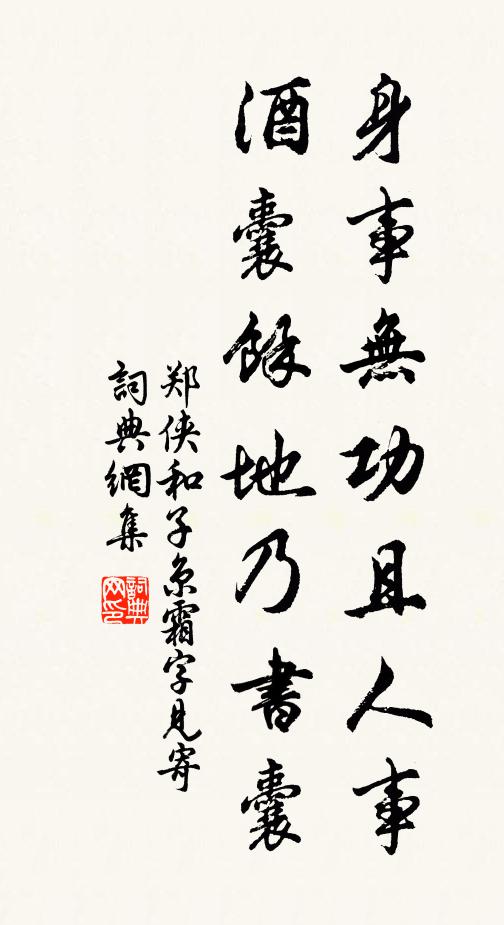 身事無功且人事
酒囊餘地乃書囊
郑侠和子京霜字见寄
詞典網集
詞典
网印